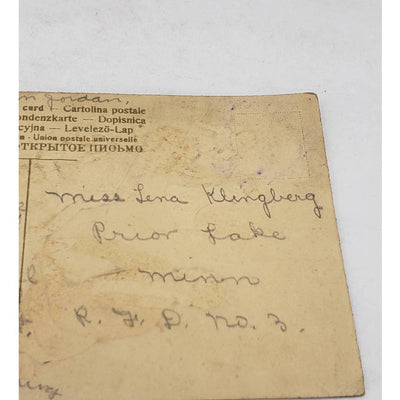 Jordan,
card — Cartolina postale
ondenzkarte — Dopisnica
cyjna — Levelező-Lap
- Union postale universelle
ОТКРЫТОЕ ПИСЬМО
Miss Lena Klingberg
Prior Lake
Minn
R. F. D. No. 3.